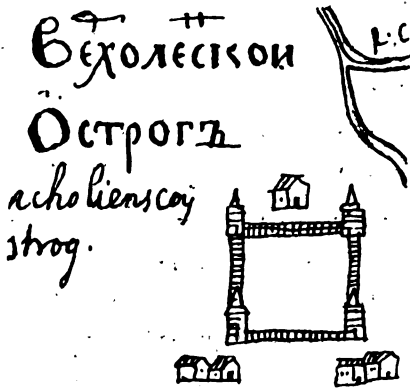 Вехолескои
Острогъ
acholienscoy
strog.
R: C